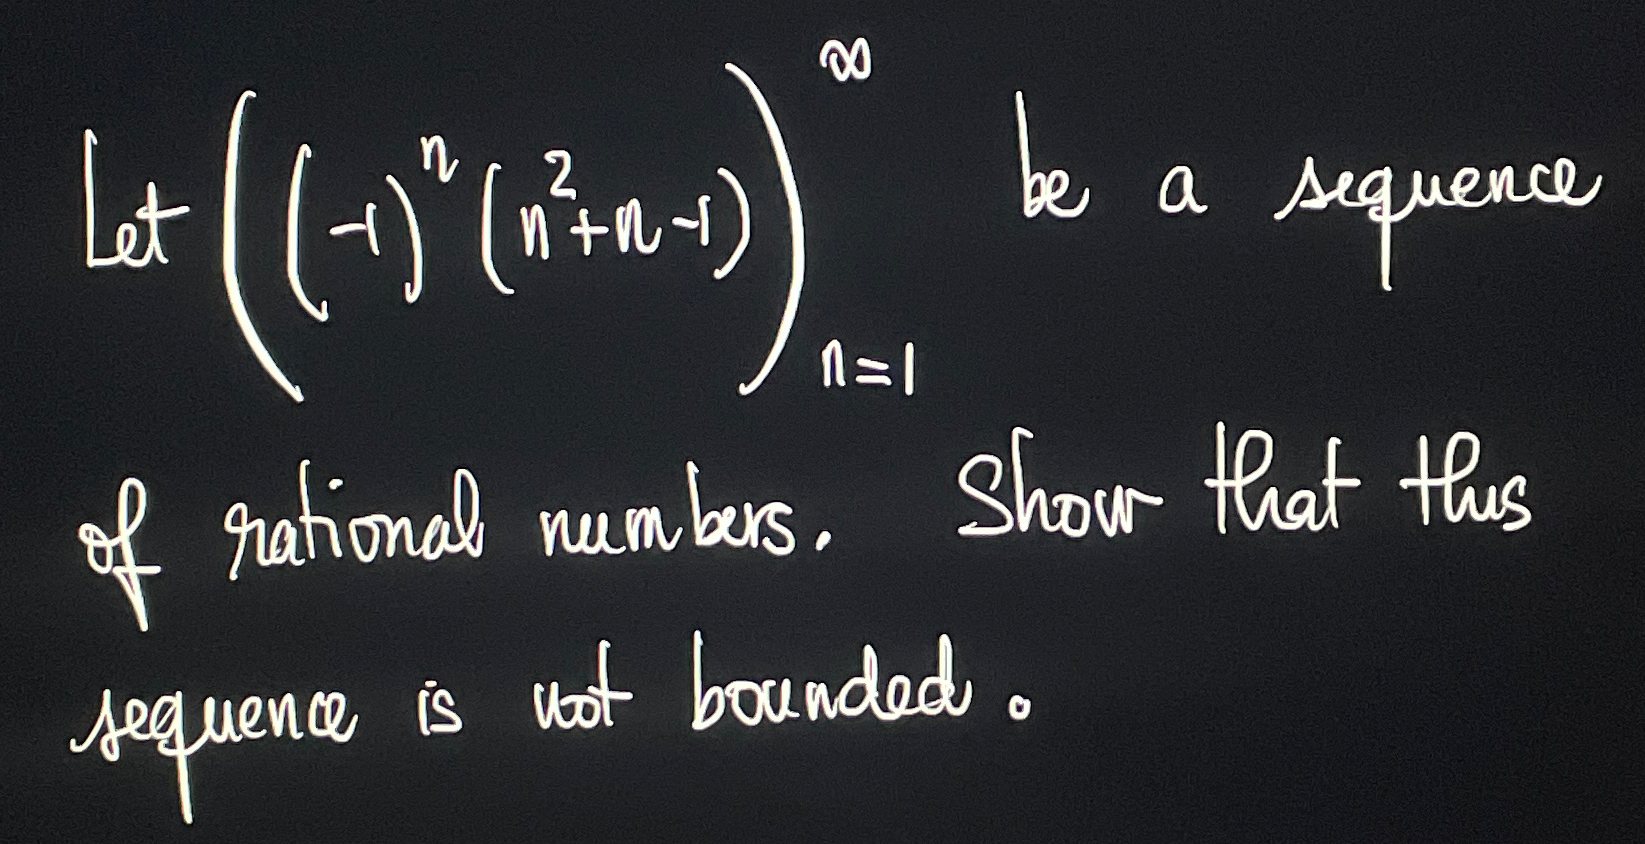 Let ((-1)^n (n^2+n-1))_{n=1}^∞ be a sequence
of rational numbers. Show that this
sequence is not bounded.